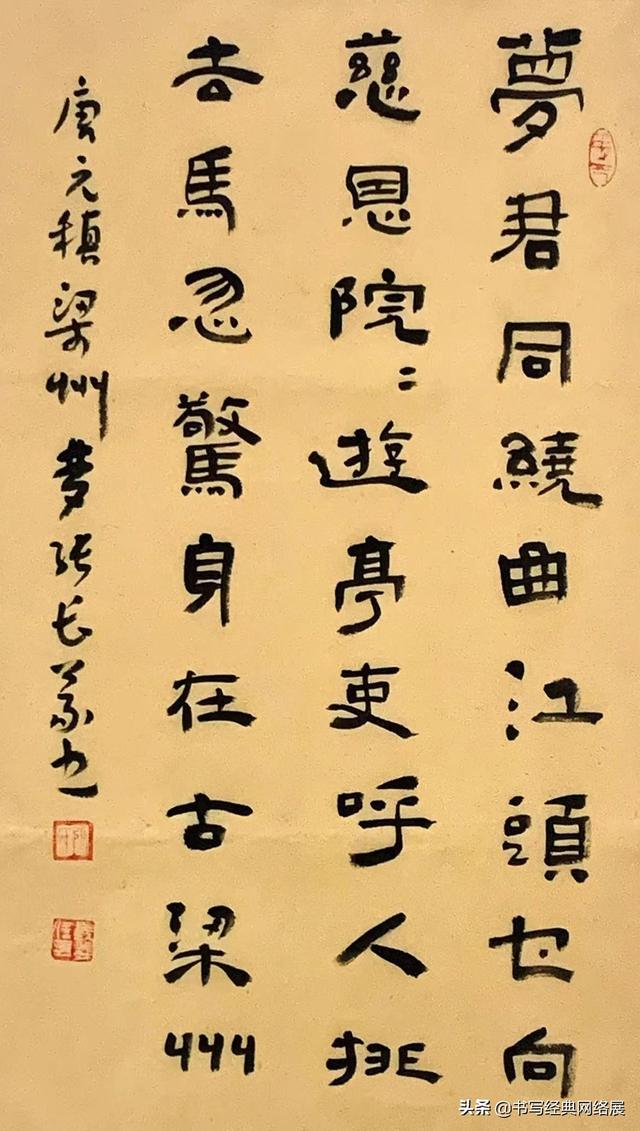 夢君同繞曲江頭也向
慈恩院々遊亭吏呼人排
去馬忽驚身在古梁州
唐元稹梁州夢张长義书
头条 @书写经典网络展